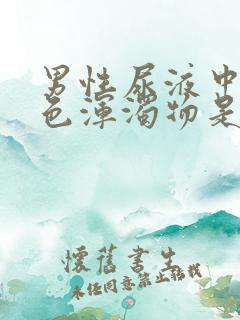 男性尿液中
色浑浊物是
懷舊書生
未经同意禁止转载